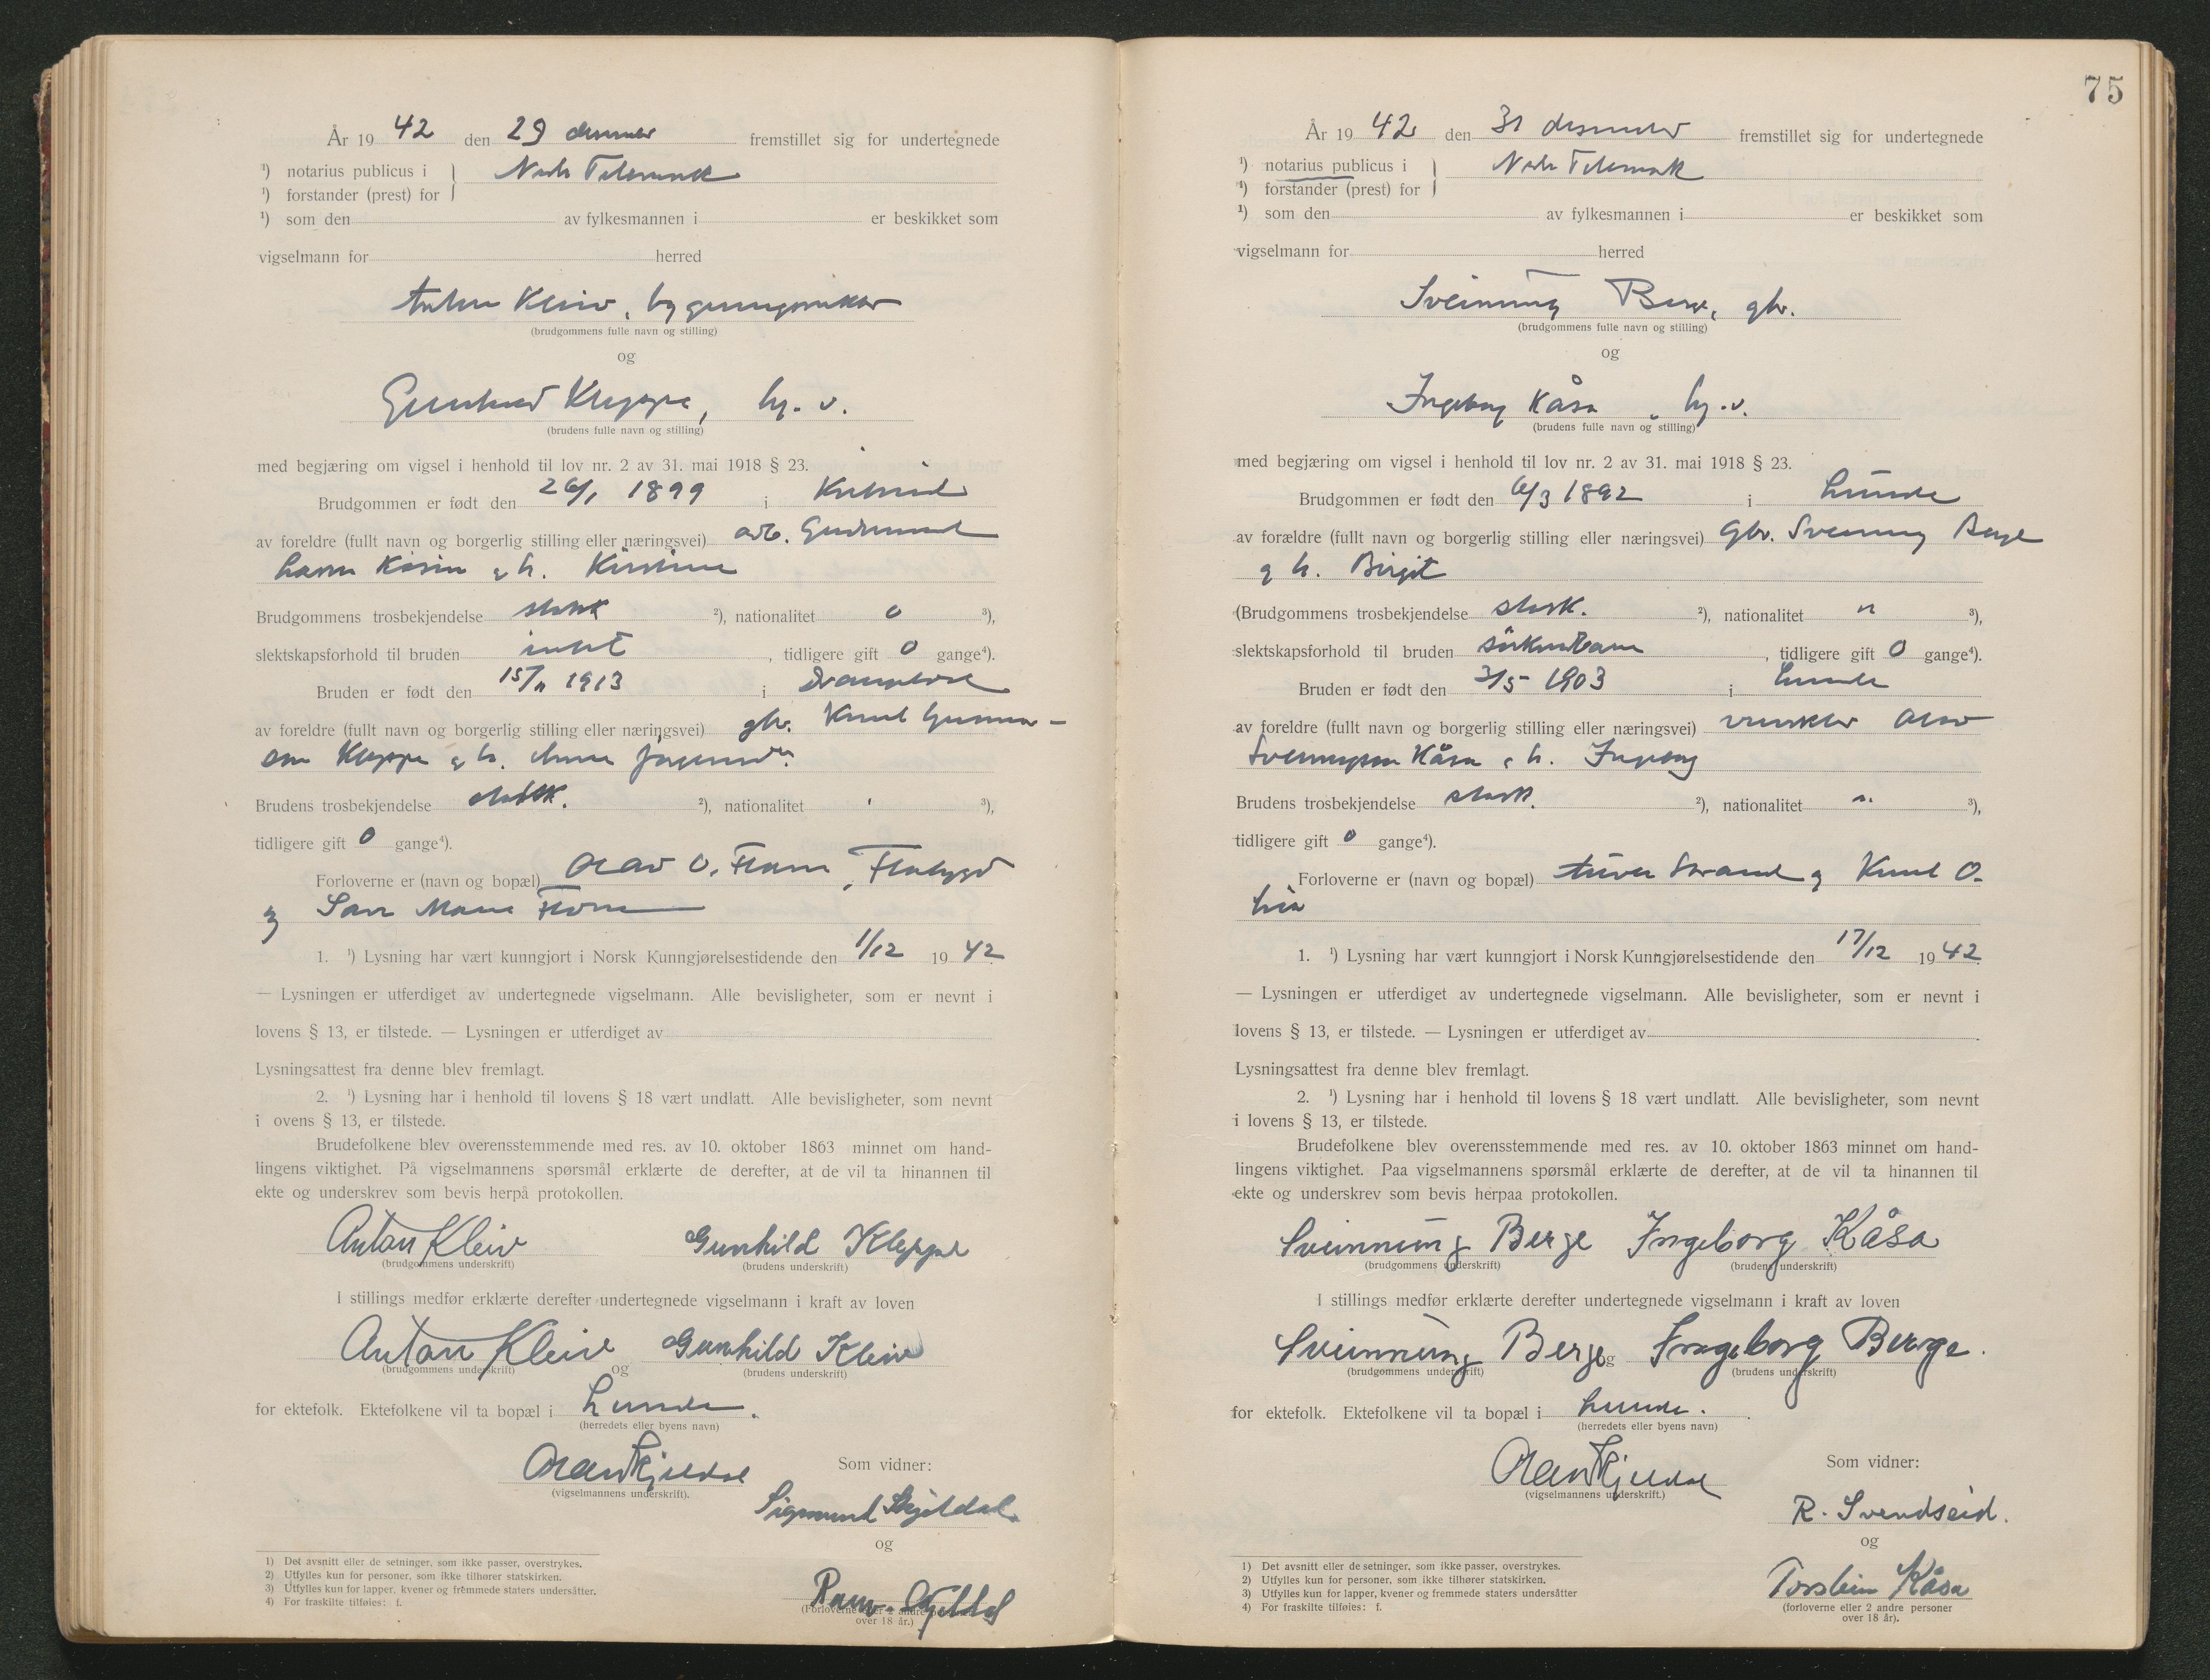 År 19 42 den 29 desember fremstillet sig for undertegnede
¹) notarius publicus i } Nedre Telemark
¹) forstander (prest) for
¹) som den av fylkesmannen i er beskikket som
vigselmann for herred
Anton Kleiv,
(brudgommens fulle navn og stilling)
og
Gunhild Kleppe, hj. v.
(brudens fulle navn og stilling)
med begjæring om vigsel i henhold til lov nr. 2 av 31. mai 1918 § 23.
Brudgommen er født den 26/1 1899 i
av foreldre (fullt navn og borgerlig stilling eller næringsvei) arb. Gudmund
og h. Kirstine
Brudgommens trosbekjendelse statsk ²), nationalitet 0 ³),
slektskapsforhold til bruden intet, tidligere gift 0 gange⁴).
Bruden er født den 15/11 1913 i Drangedal
av foreldre (fullt navn og borgerlig stilling eller næringsvei) gbr. Knut Gunnar-
son Kleppe og h. Anne
Brudens trosbekjendelse statsk. ²), nationalitet ³),
tidligere gift 0 gange⁴).
Forloverne er (navn og bopæl) Olav O. , Flåbygd
og Marie
1. ¹) Lysning har vært kunngjort i Norsk Kunngjørelsestidende den 1/12 19 42
— Lysningen er utferdiget av undertegnede vigselmann. Alle bevisligheter, som er nevnt i
lovens § 13, er tilstede. — Lysningen er utferdiget av
Lysningsattest fra denne blev fremlagt.
2. ¹) Lysning har i henhold til lovens § 18 vært undlatt. Alle bevisligheter, som nevnt
i ovens § 13, er tilstede.
Brudefolkene blev overensstemmende med res. av 10. oktober 1863 minnet om hand-
lingens viktighet. På vigselmannens spørsmål erklærte de derefter, at de vil ta hinannen til
ekte og underskrev som bevis herpå protokollen.
Anton Kleiv Gunhild Kleppe
(brudgommens underskrift) (brudens underskrift)
I stillings medfør erklærte derefter undertegnede vigselmann i kraft av loven
Anton Kleiv og Gunhild Kleiv
(brudgommens underskrift) (brudens underskrift)
for ektefolk. Ektefolkene vil ta bopæl i Lunde.
(herredets eller byens navn)
Olav Skjeldal
(vigselmannens underskrift).
Som vidner:
Sigmund Skjeldal.
og
Skjeldal
(Forloverne eller 2 andre personer
over 18 år.)
1) Det avsnitt eller de setninger, som ikke passer, overstrykes.
2) Utfylles kun for personer, som ikke tilhører statskirken.
3) Utfylles kun for lapper, kvener og fremmede staters undersåtter.
4) For fraskilte tilføies: f.
75
År 19 42 den 31 desember fremstillet sig for undertegnede
¹) notarius publicus i } Nedre Telemark
¹) forstander (prest) for
¹) som den av fylkesmannen i er beskikket som
vigselmann for herred
Sveinung Berge, gbr.
(brudgommens fulle navn og stilling)
og
Ingeborg Kåsa, hj. v.
(brudens fulle navn og stilling)
med begjæring om vigsel i henhold til lov nr. 2 av 31. mai 1918 § 23.
Brudgommen er født den 6/3 1892 i Lunde
av forældre (fullt navn og borgerlig stilling eller næringsvei) Gbr. Sveinung Berge
og h. Birgit
(Brudgommens trosbekjendelse statsk. ²), nationalitet n ³),
slektskapsforhold til bruden søskenbarn, tidligere gift 0 gange⁴).
Bruden er født den 3/5 1903 i Lunde
av foreldre (fullt navn og borgerlig stilling eller næringsvei) Olav
Sveinungson Kåsa og h. Ingeborg
Brudens trosbekjendelse statsk. ²), nationalitet n. ³),
tidligere gift 0 gange⁴).
Forloverne er (navn og bopæl) Strand og Knut O.
Lia
1. ¹) Lysning har vært kunngjort i Norsk Kunngjørelsestidende den 17/12 19 42.
— Lysningen er utferdiget av undertegnede vigselmann. Alle bevisligheter, som er nevnt i
lovens § 13, er tilstede. — Lysningen er utferdiget av
Lysningsattest fra denne blev fremlagt.
2. ¹) Lysning har i henhold til lovens § 18 vært undlatt. Alle bevisligheter, som nevnt
i lovens § 13, er tilstede.
Brudefolkene blev overensstemmende med res. av 10. oktober 1863 minnet om hand-
lingens viktighet. Paa vigselmannens spørsmål erklærte de derefter, at de vil ta hinannen til
ekte og underskrev som bevis herpaa protokollen.
Sveinnung Berge Ingeborg Kåsa
(brudgommens underskrift) (brudens underskrift)
I stillings medfør erklærte derefter undertegnede vigselmann i kraft av loven
Sveinnung Berge og Ingeborg Berge.
(brudgommens underskrift) (brudens underskrift)
for ektefolk. Ektefolkene vil ta bopæl i Lunde.
(herredets eller byens navn)
Olav Skjeldal
(vigselmannens underskrift.)
Som vidner:
R. Svendseid.
og
Torstein Kåsa
(forloverne eller 2 andre personer
over 18 år).
1) Det avsnitt eller de setninger, som ikke passer, overstrykes.
2) Utfylles kun for personer, som ikke tilhører statskirken.
3) Utfylles kun for lapper, kvener og fremmede staters undersåtter
4) For fraskilte tilføies: f.